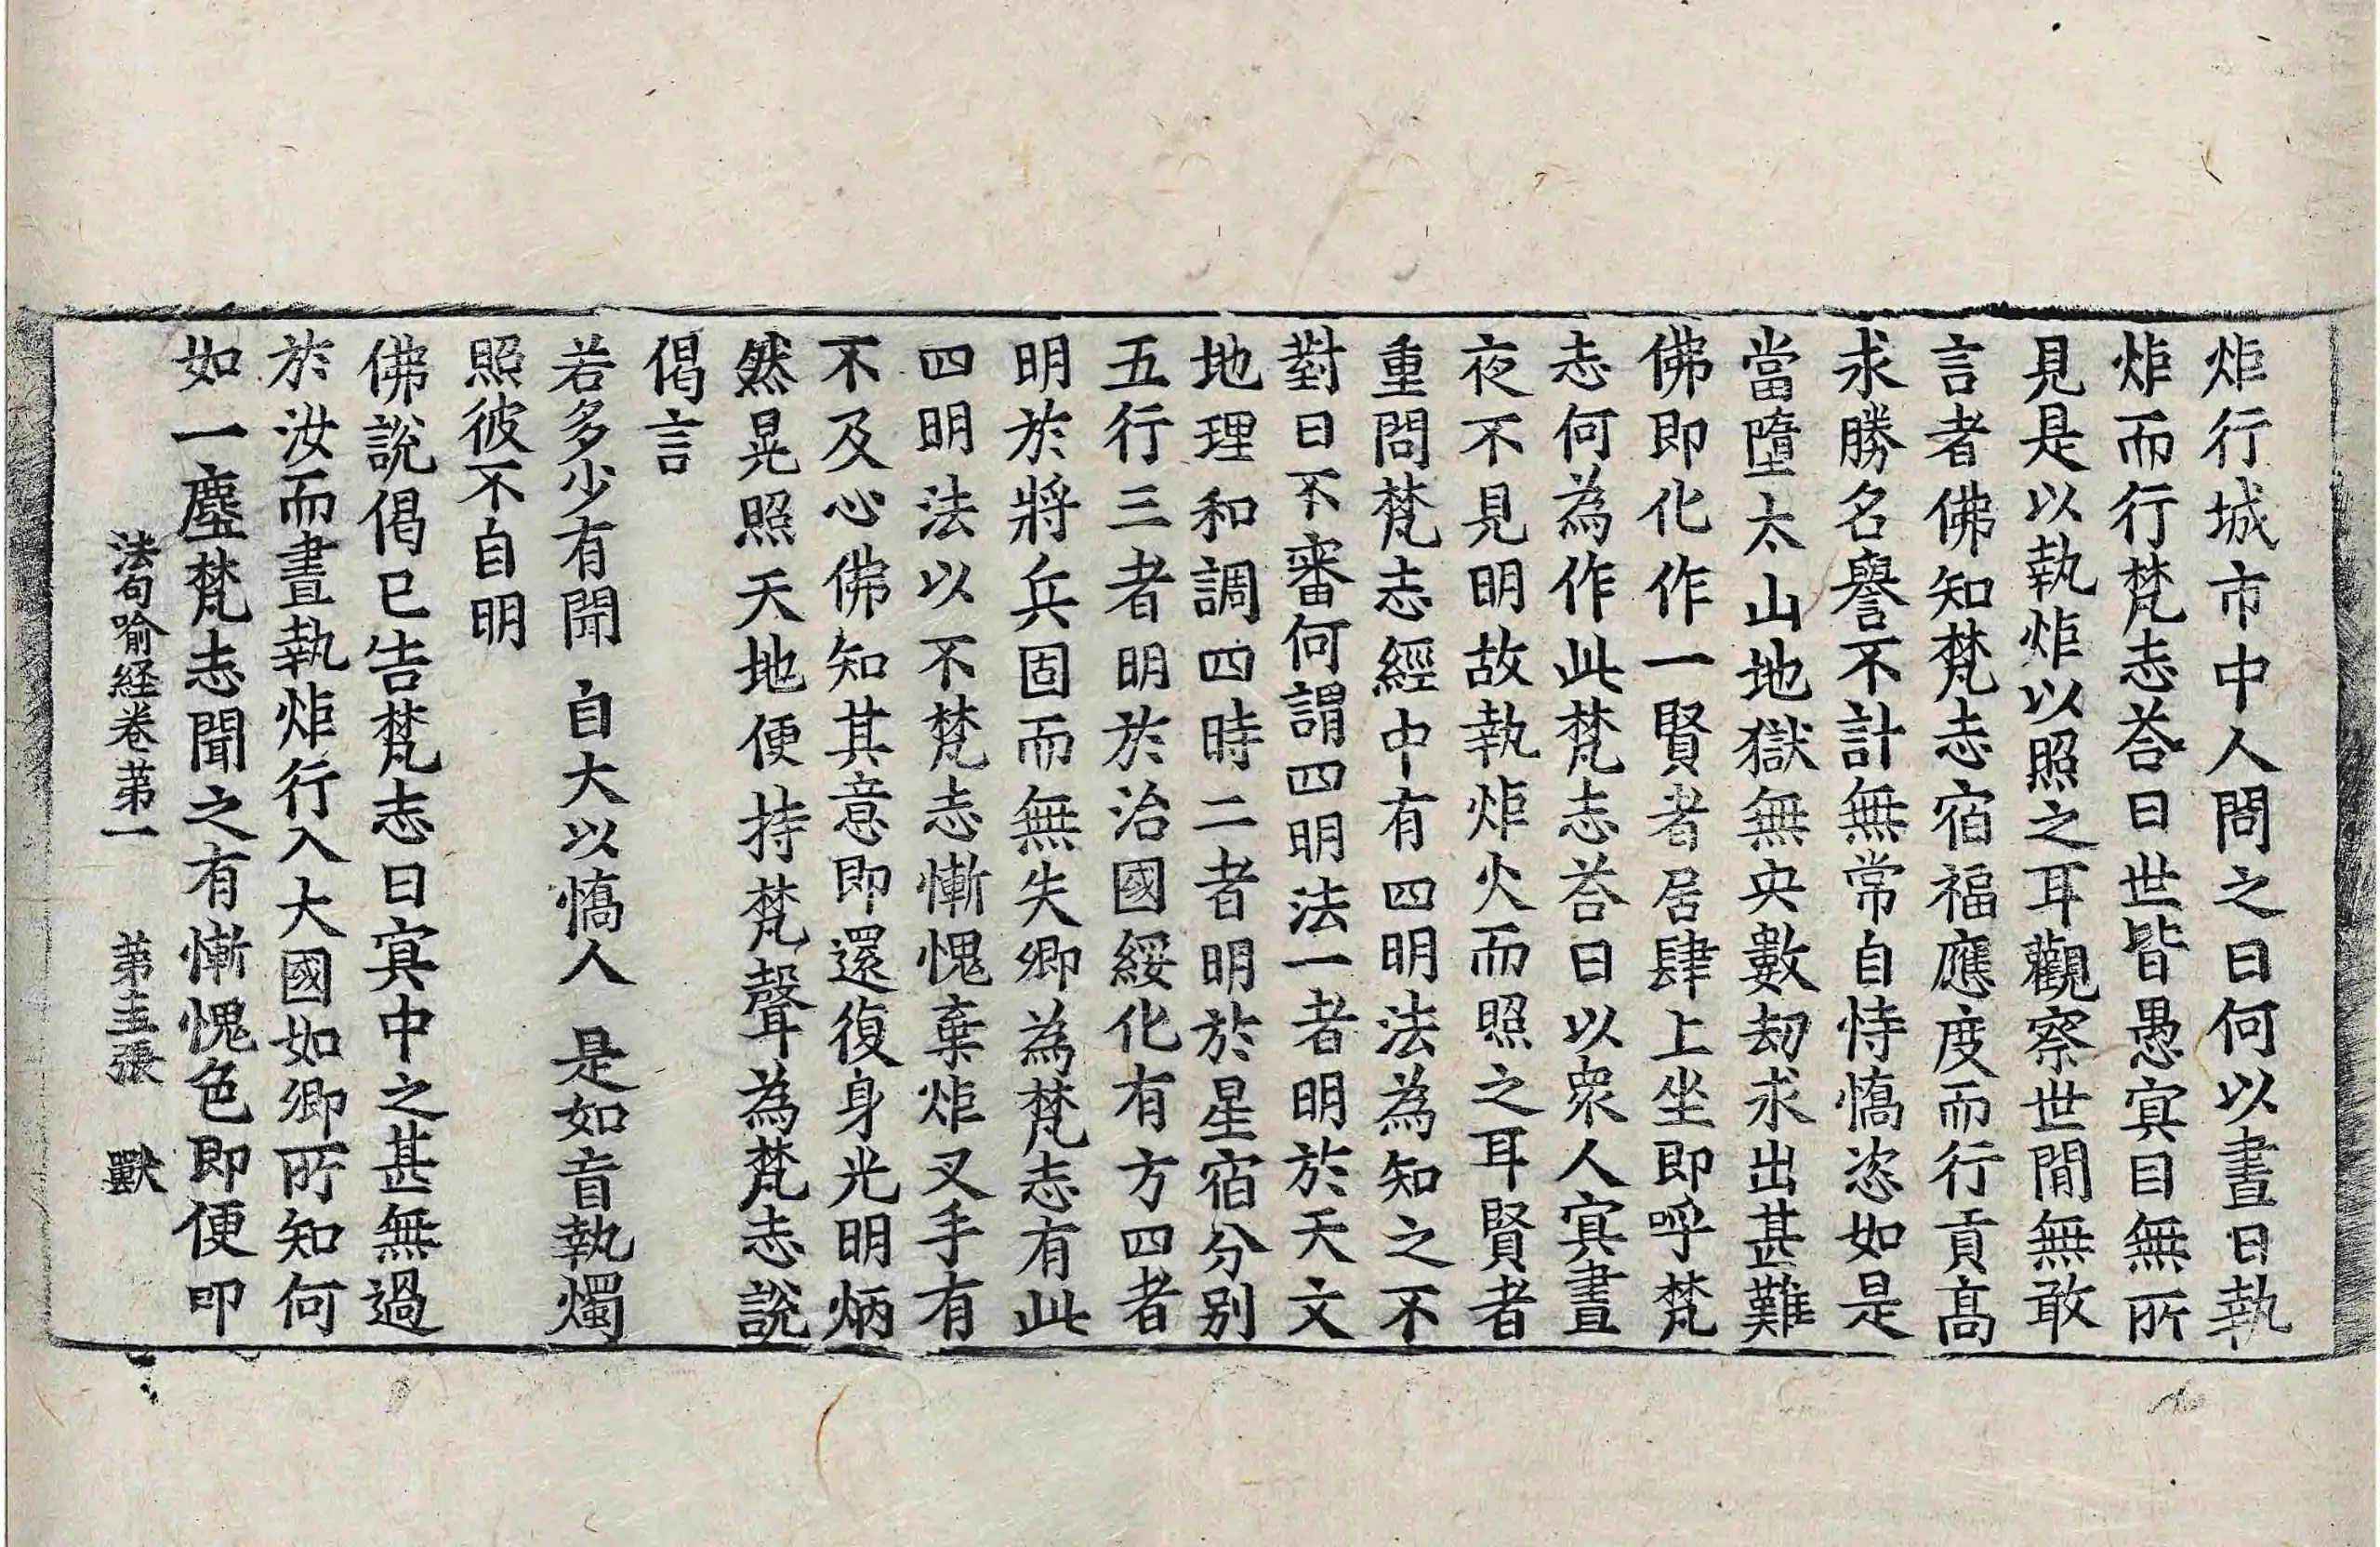 炬行城市中人問之曰何以晝日執
炬而行梵志荅曰世皆愚㝠目無所
見是以執炬以照之耳觀察世閒無敢
言者佛知梵志宿福應度而行貢髙
求勝名譽不計無常自恃憍恣如是
當墮太山地獄無央數劫求出甚難
佛即化作一賢者居肆上坐即呼梵
志何為作此梵志荅曰以衆人㝠晝
夜不見明故執炬火而照之耳賢者
重問梵志經中有四明法為知之不
對曰不審何謂四明法一者明於天文
地理和調四時二者明於星宿分別
五行三者明於治國綏化有方四者
明於將兵固而無失卿為梵志有此
四明法以不梵志慚愧棄炬叉手有
不及心佛知其意即還復身光明炳
然晃照天地便持梵聲為梵志說
偈言
若多少有聞 自大以憍人 是如盲執燭
照彼不自明
佛說偈已告梵志曰㝠中之甚無過
於汝而晝執炬行入大國如卿所知何
如一塵梵志聞之有慚愧色即便叩
法句喻経卷苐一 苐圭張 獸